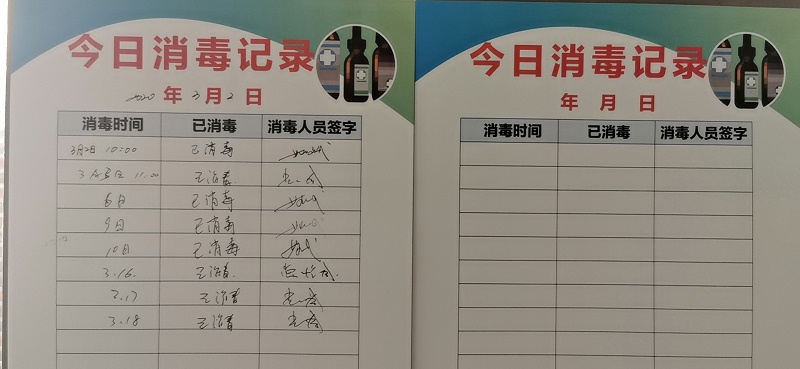 今日消毒记录
2020 年 3 月 2 日
消毒时间 已消毒 消毒人员签字
3月2日 10:00 已消毒
3月5日 11:00 已消毒
6日 已消毒
9日 已消毒
10日 已消毒
3.16. 已消毒
3.17 已消毒
3.18 已消毒
今日消毒记录
年 月 日
消毒时间 已消毒 消毒人员签字